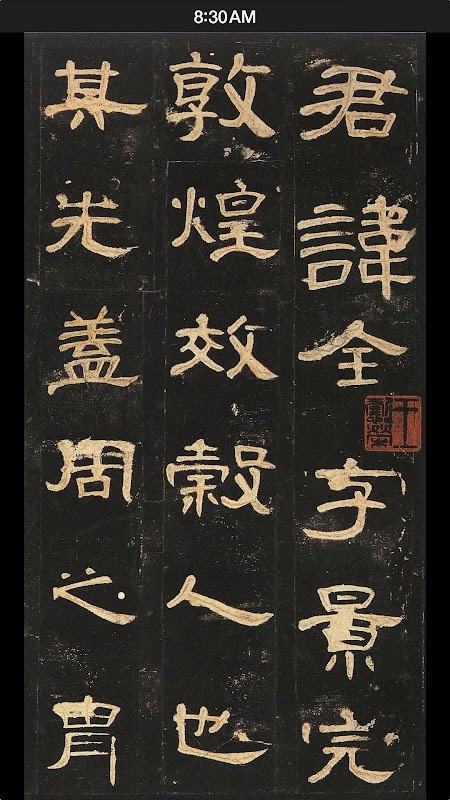 8:30AM
君諱全字景完
敦煌效穀人也
其先盖周之胄